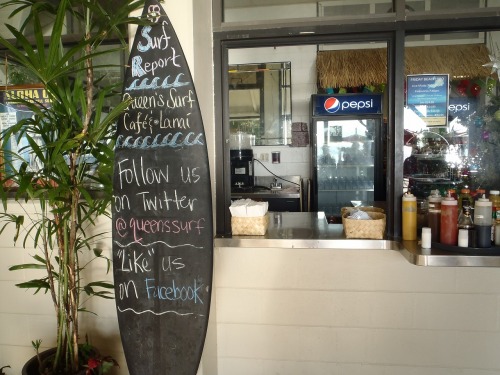 Surf
Report
Queen's Surf
Café & Lanai
Follow us
on Twitter
@queenssurf
"Like" us
on Facebook
pepsi
pepsi